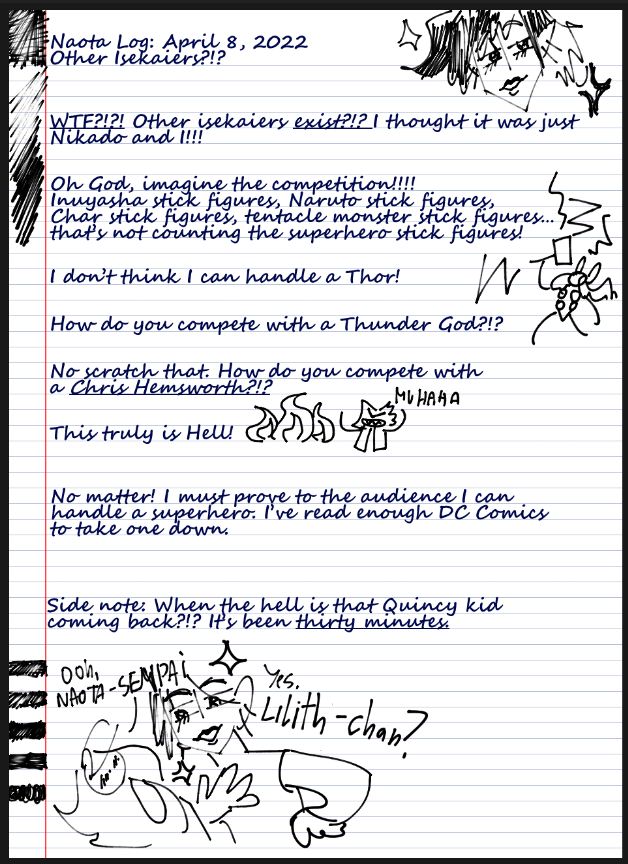 Naota Log: April 8, 2022
Other Isekaiers?!?
WTF?!?! Other isekaiers exist?!? I thought it was just
Nikado and I!!!
Oh God, imagine the competition!!!!
Inuyasha stick figures, Naruto stick figures,
Char stick figures, tentacle monster stick figures...
that's not counting the superhero stick figures!
I don't think I can handle a Thor!
How do you compete with a Thunder God?!?
No scratch that. How do you compete with
a Chris Hemsworth?!?
MUHAAA
This truly is Hell!
No matter! I must prove to the audience I can
handle a superhero. I've read enough DC Comics
to take one down.
Side note: When the hell is that Quincy kid
coming back?!? It's been thirty minutes.
Ooh,
NAOTA-SEMPAI
Yes,
Lilith-chan?